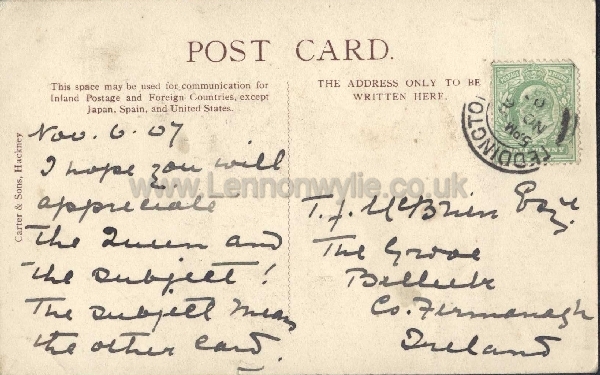 POST CARD.
This space may be used for communication for
Inland Postage and Foreign Countries, except
Japan, Spain, and United States.
THE ADDRESS ONLY TO BE
WRITTEN HERE.
Carter & Sons, Hackney
Nov. 6. 07
I hope you will
appreciate
the Queen and
the subject!
The subject means
the other card.
T. J. McBrien Esqr.
The Grove
Belleek
Co. Fermanagh
Ireland
www.Lennonwylie.co.uk